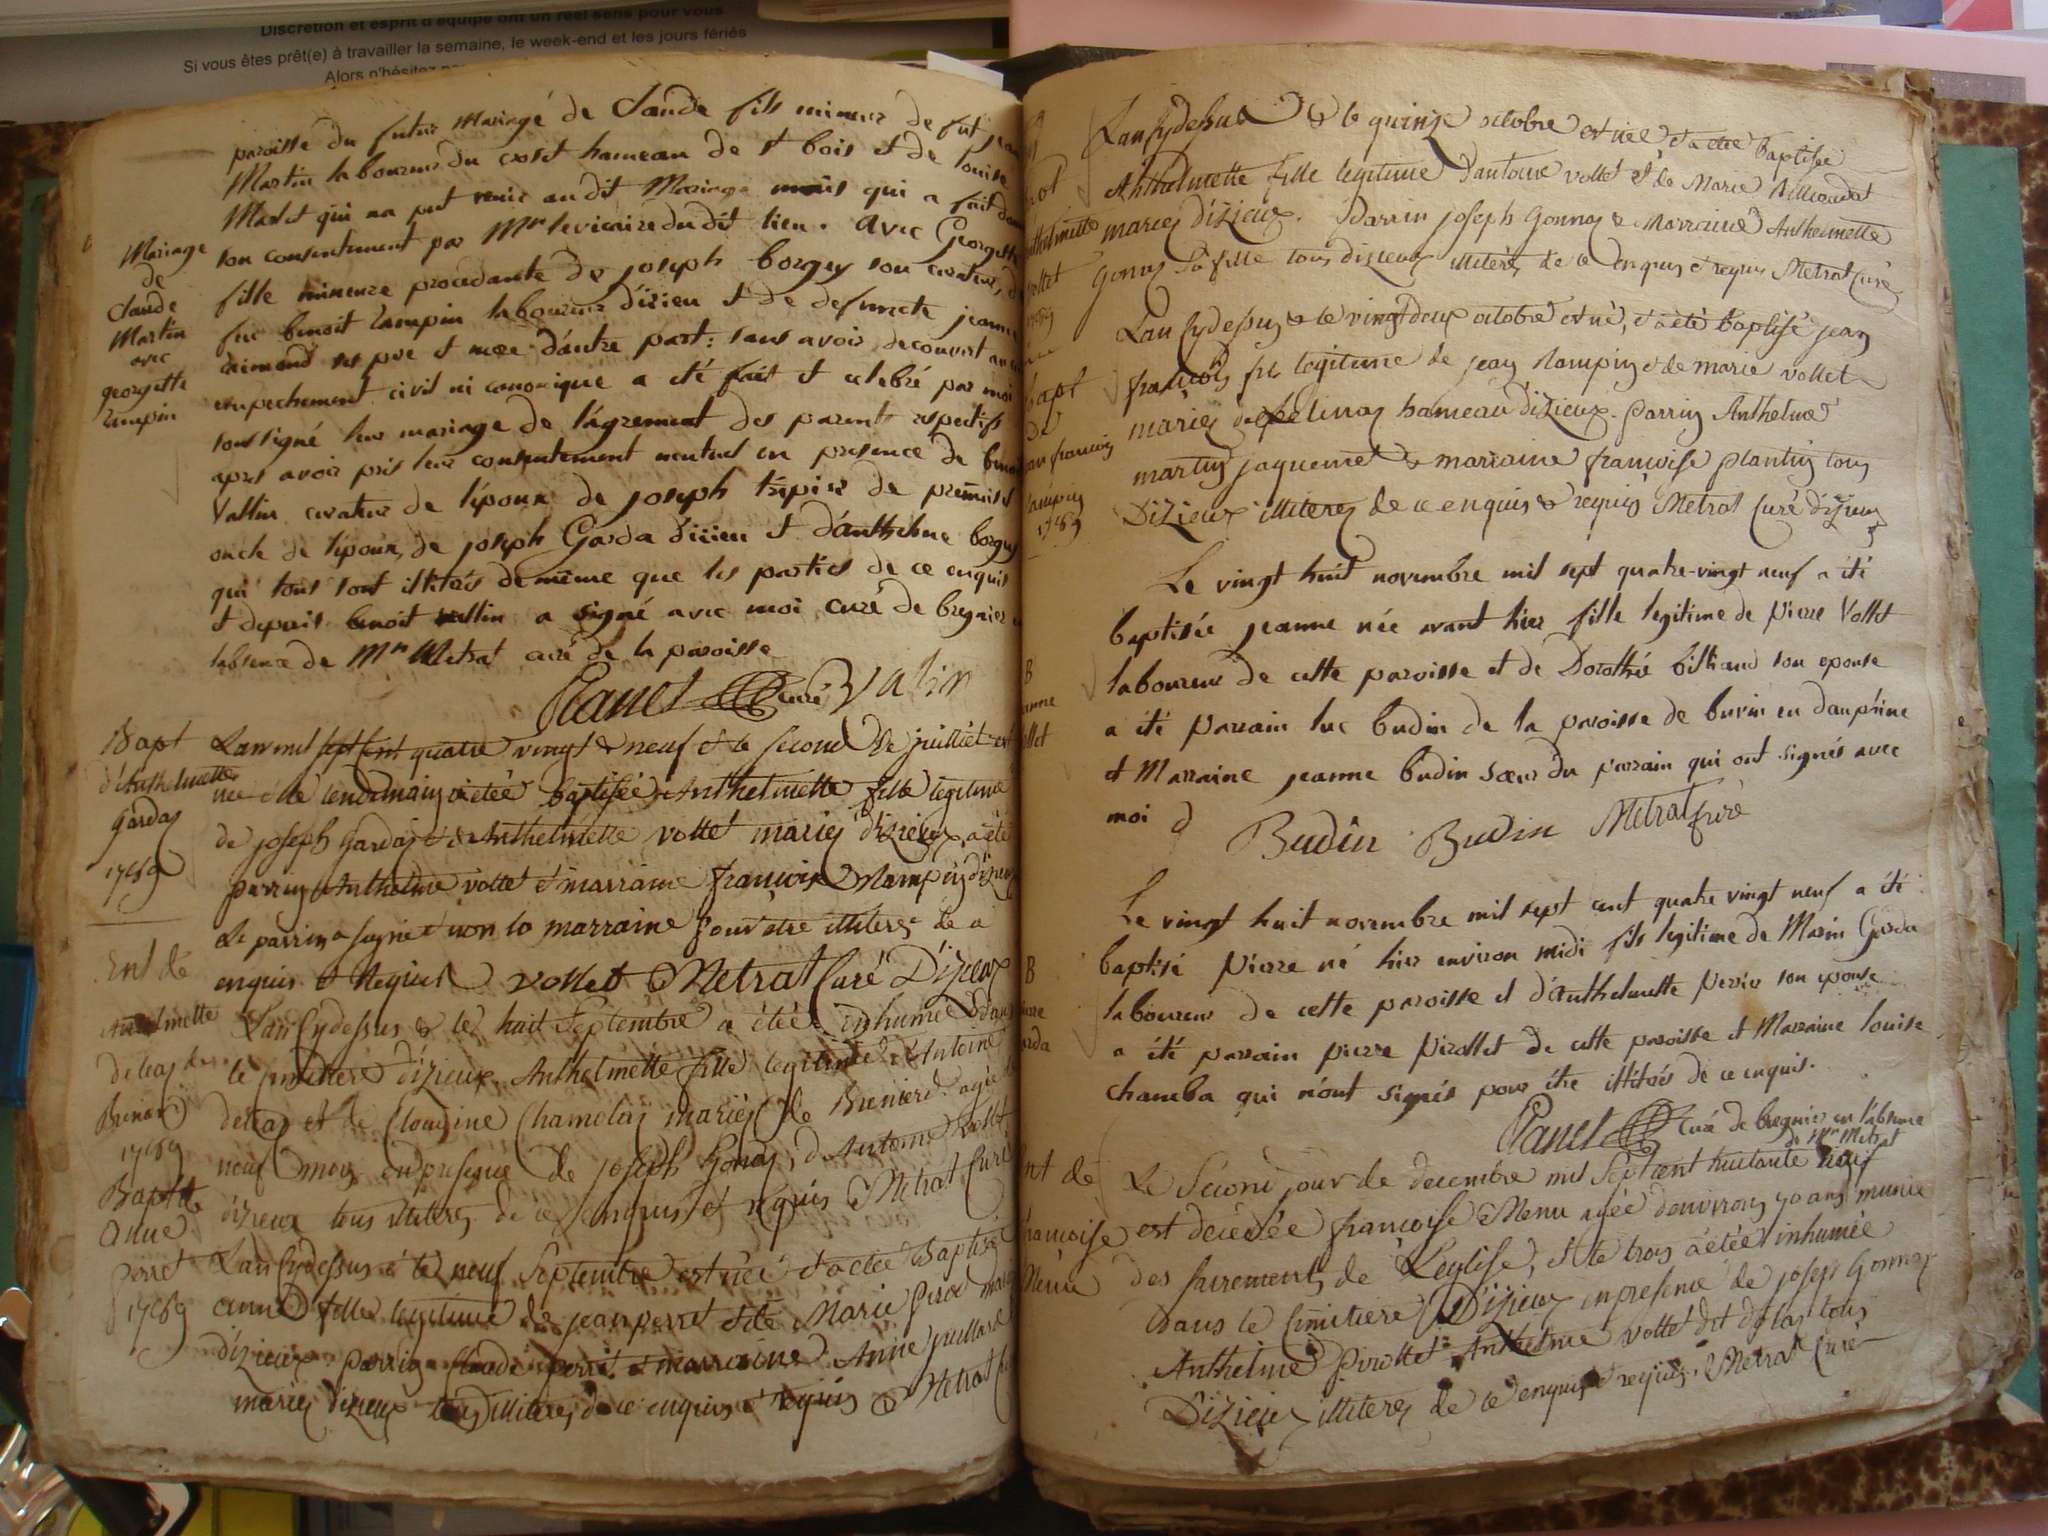 Discrétion et esprit d'équipe ont un réel sens pour vous
Si vous êtes prêt(e) à travailler la semaine, le week-end et les jours fériés
Alors n'hésitez
paroisse du futur mariage de Claude fils mineur de fut jean
Martin laboureur du hameau de st bois et de louise
qui na put venir audit Mariage mais qui a fait
son consentement par Mr le vicaire du dit lieu. avec Georgette
fille mineure procedante de joseph borgey son curateur
feu benoit rampin laboureur d'izieu et de defuncte jeanne
ses pere et mere d'autre part: sans avoir decouvert
empechement civil ni canonique a été fait et celebré par moi
soussigné leur mariage de l'agrement des parents respectifs
apres avoir pris leur consentement mutuel en presence de benoit
Vallin curateur de l'époux de joseph de
oncle de l'époux, de joseph Garda d'izieu et d'anthelme borgey
qui tous sont illiterés de même que les parties de ce enquis
et depuis benoit vallin a signé avec moi curé de bregnier
labsence de Mr Metrat curé de la paroisse
curé Valin
Mariage
de
claude
Martin
avec
georgette
rampin
Bapt
d'Anthelmette
garday
1789
Lan mil sept cent quatre vingt & neuf et le second de juilliet est
née et le lendemain a étéé baptisée Anthelmette fille legitime
de joseph garday et de Anthelmette vollet mariez d'izieux, a été
parrin Anthelme vollet et marraine françoise rampin dizieux
Le parrin a signé et non la marraine pour etre illiterée de ce
enquis et Requise vollet Metrat Curé D'izieux
Ent de
Anthelmette
deleaz
1789
Lan cydessus & le huit Septembre a étéé inhumée dans
le cimitiere d'izieux Anthelmette fille legitime d'Antoine
deleaz et de Claudine Chamelay mariéz de Brenierd agée
neuf mois en presence de joseph gonay, d'Antoine vollet
dizieux tous illiterez de ce enquis et requis Metrat Curé
Bapt de
Anne
perret
1789
Lan cydessus & le neuf Septembre est née et a étéé Baptisé
anne fille legitime de jean perret et de Marie
dizieux parrin Claude perret et marraine Anne juillard
mariez dizieux tous illiterez de ce enquis et requis Metrat
Lan cydessus & le quinze octobre est née et a étée baptisée
Anthelmette fille legitime d'antoine vollet et de Marie Billiondet
mariez d'izieux. Parrin joseph Gonnay & Marraine Anthelmette
Gonay sa fille tous dizieux illiterés de ce enquis & requis Metrat Curé
Lan cydessus & le vingt deux octobre est né, et a été baptisé jean
françois fils legitime de jean rampin & de marie vollet
mariez de hameau d'izieux. parrin Anthelme
martin jaquemet & marraine françoise plantin tous
Dizieux illiterez de ce enquis & requis Metrat Curé dizieux
bapt
de
françois
rampin
1789
Le vingt huit novembre mil sept quatre-vingt neuf a été
baptisée jeanne née avant hier fille legitime de pierre Vollet
laboureur de cette paroisse et de Dorothée billiand son epouse
a été parrain luc budin de la paroisse de buvin en dauphine
et Marraine jeanne budin sœur du parrain qui ont signés avec
moi
Budin Budin Metrat curé
Le vingt huit novembre mil sept cent quatre vingt neuf a été
baptisé pierre né hier environ midi fils legitime de Marin Garda
laboureur de cette paroisse et d'anthelmette son epouse
a été parrain pierre pirollet de cette paroisse et Marraine louise
chamba qui n'ont signés pour être illiterés de ce enquis.
Curé de bregnier en l'absence
de Mr Metrat
Ent de
françoise
Menu
Le Second jour de decembre mil Sept cent huitante neuf
est décédée françoise Menu agée d'environ 70 ans munie
des sacrements de L'eglise, et le trois a étée inhumée
dans le Cimitiere D'izieux en presence de joseph Gonnay
Anthelme pirollet Anthelme vollet dit tous
D'izieux illiterez de ce enquis & requis, Metrat Curé